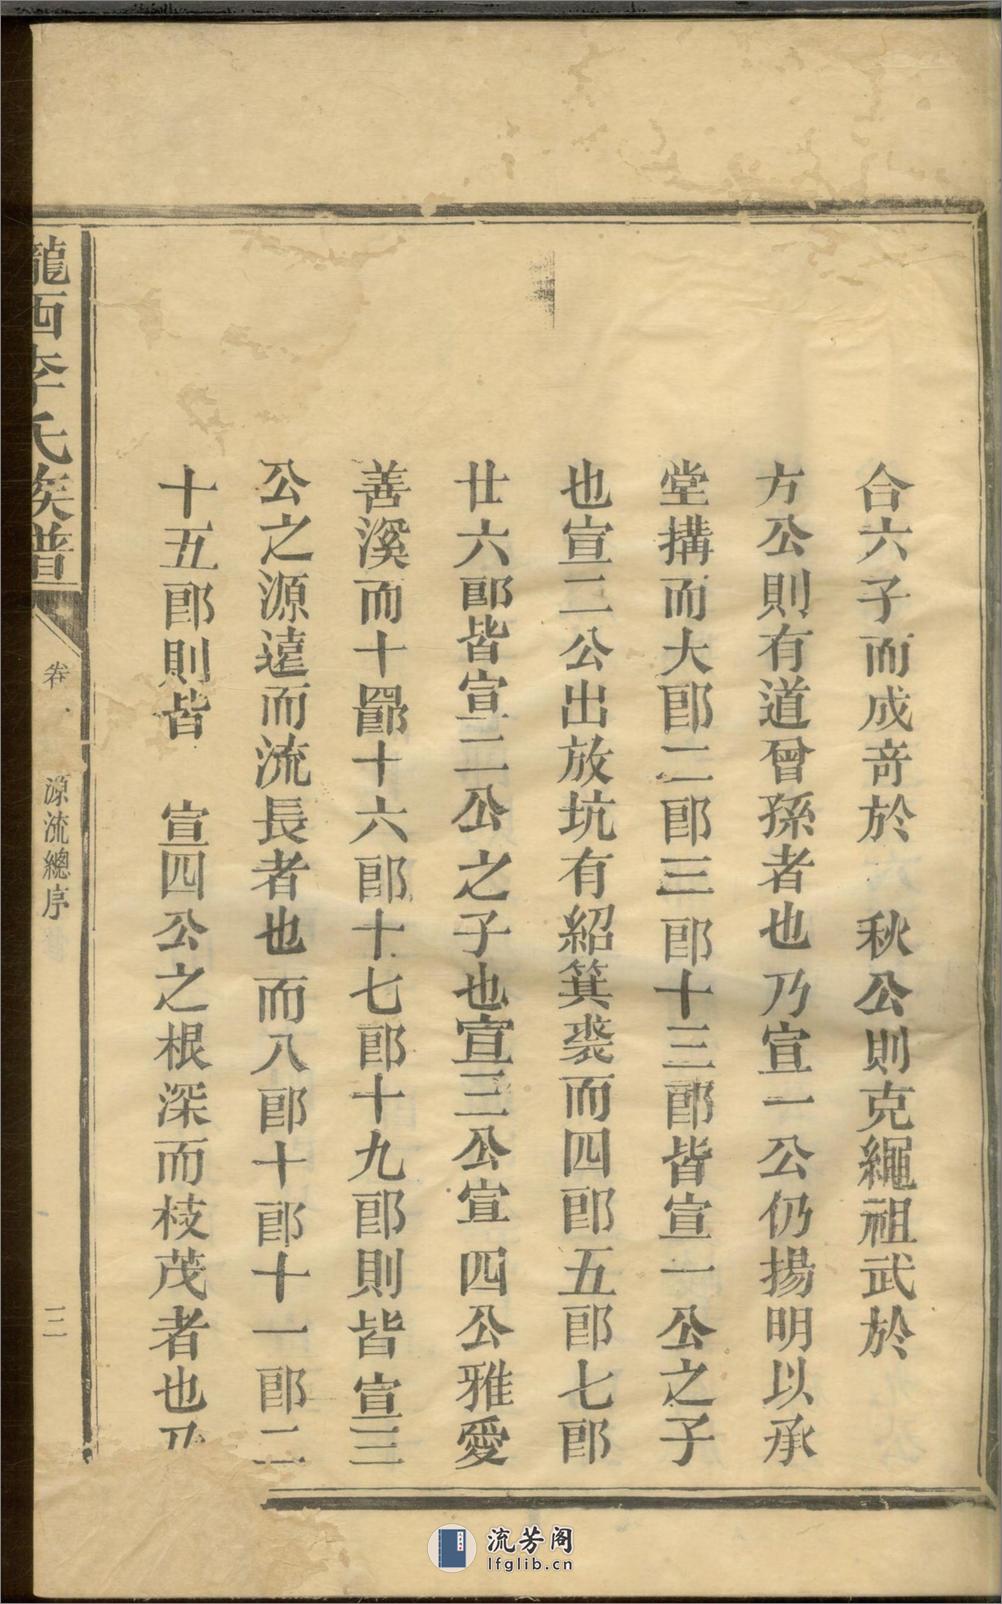 合六子而成竒於　秋公則克繩祖武於
方公則有道曾孫者也乃宣一公仍揚明以承
堂搆而大郎二郎三郎十三郎皆宣一公之子
也宣二公出放坑有紹箕裘而四郎五郎七郎
廿六郎皆宣二公之子也宣三公宣四公雅愛
善溪而十四郎十六郎十七郎十九郎則皆宣三
公之源遠而流長者也而八郎十郎十一郎二
十五郎則皆　宣四公之根深而枝茂者也乃
隴西李氏族譜
卷
源流總序
三
流芳阁
lfglib.cn